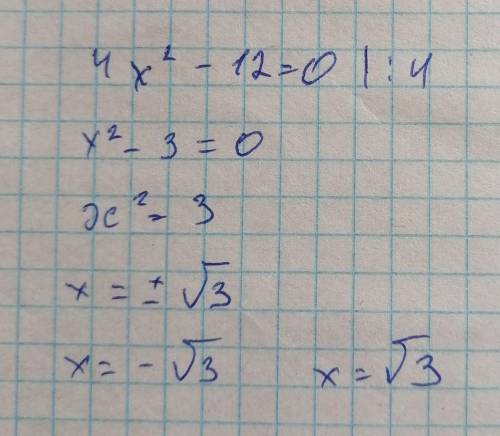 4x² - 12 = 0 | : 4
x² - 3 = 0
x² = 3
x = ± √3
x = - √3 x = √3